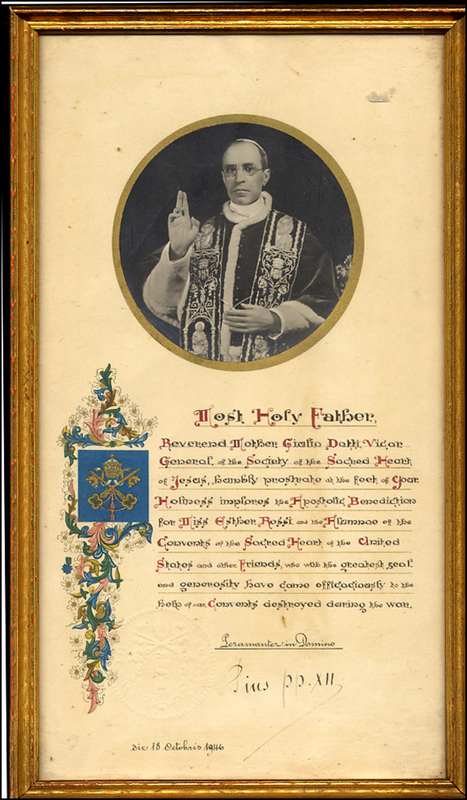 Most Holy Father,
Reverend Mother Giulia Datti, Vicar
General of the Society of the Sacred Heart
of Jesus, humbly prostrate at the feet of Your
Holiness implores the Apostolic Benediction
for Miss Esther Rossi and the Alumnae of the
Convents of the Sacred Heart of the United
States and other Friends, who with the greatest zeal
and generosity have come efficaciously to the
help of our Convents destroyed during the war.
in Domino
Pius pp. XII
die 18 Octobris 1946